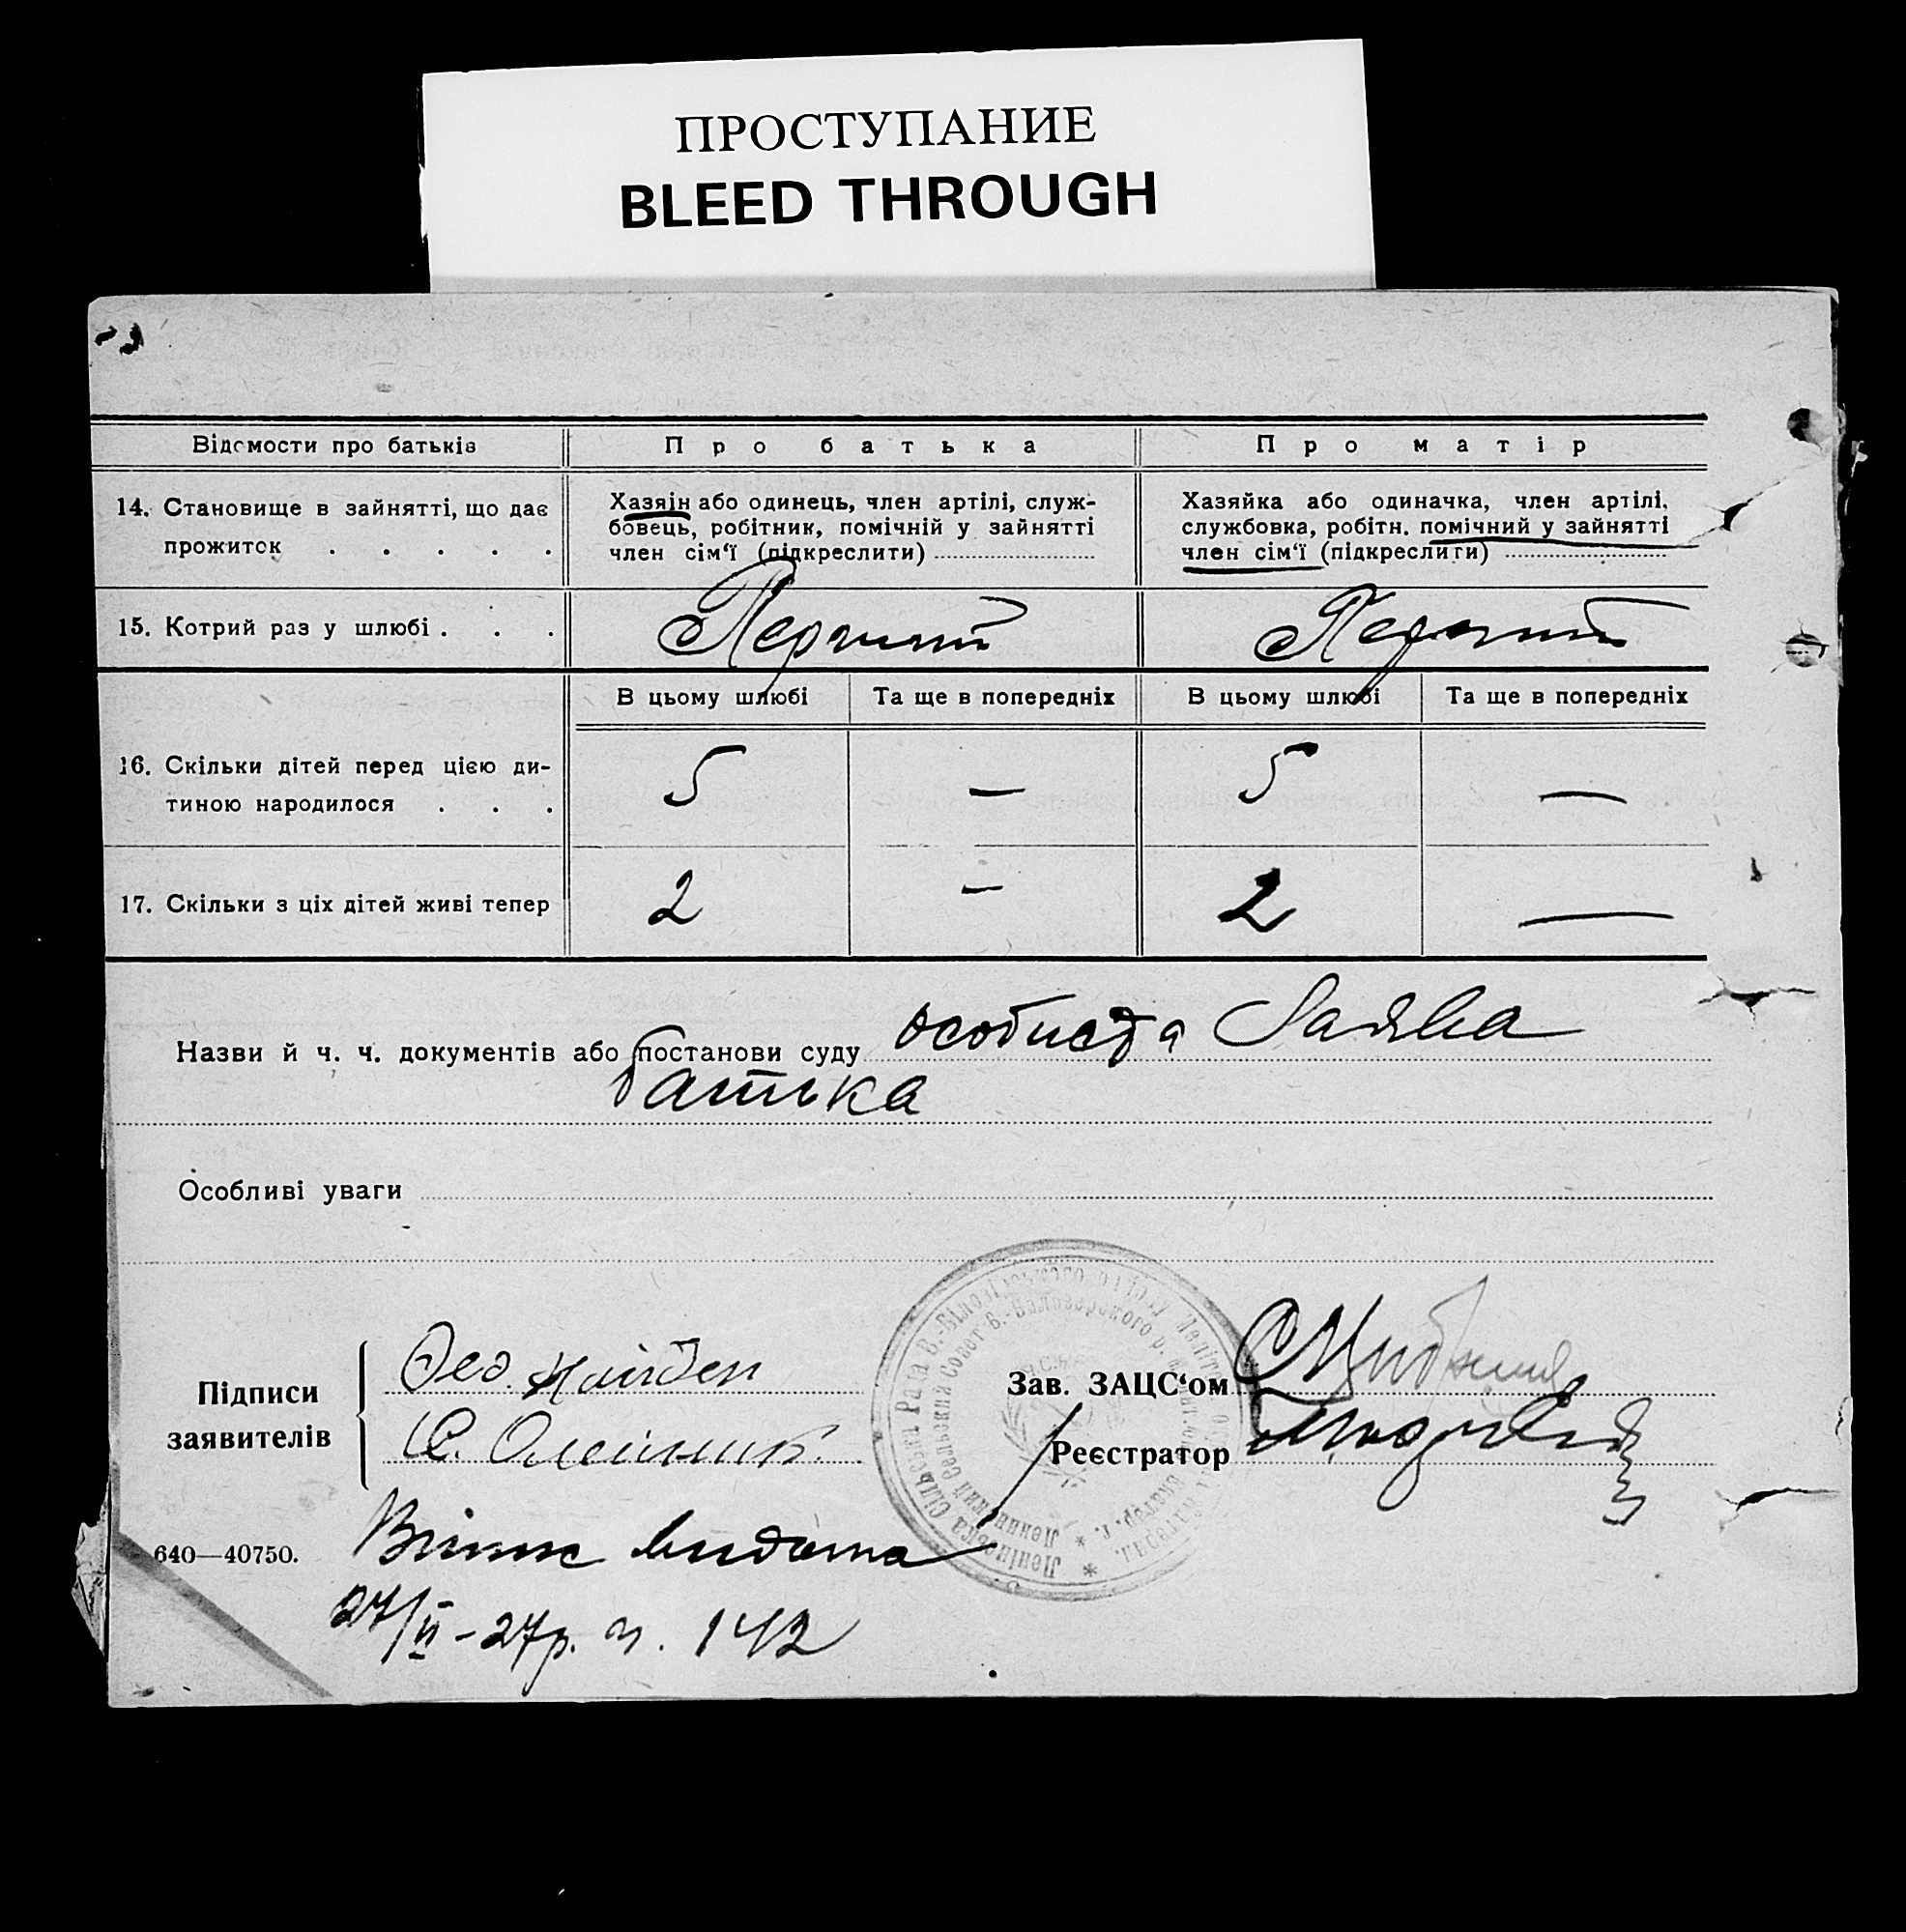 ПРОСТУПАНИЕ
BLEED THROUGH
Відомости про батьків
Про батька
Про матір
14. Становище в зайнятті, що дає
прожиток . . . . .
Хазяін або одинець, член артілі, служ-
бовець, робітник, помічній у зайнятті
член сім‘ї (підкреслити)
Хазяйка або одиначка, член артілі,
службовка, робітн. помічний у зайнятті
член сім‘ї (підкреслити)
15. Котрий раз у шлюбі . . .
Перший
Перший
В цьому шлюбі
Та ще в попередніх
В цьому шлюбі
Та ще в попередніх
16. Скільки дітей перед цією ди-
тиною народилося . . .
5 — 5 —
17. Скільки з ціх дітей живі тепер
2 — 2 —
Назви й ч. ч. документів або постанови суду особиста Заява
батька
Особливі уваги
Підписи
заявителів
Фед. Найден
Є. Олейник.
Зав. ЗАЦС‘ом
Реєстратор
Ленінська Сільська Рада В.-Білозірського
Ленинский Сельский Совет В.-Белозерского р.
640—40750.
Виписс видана
27/VI - 27р. ч. 142